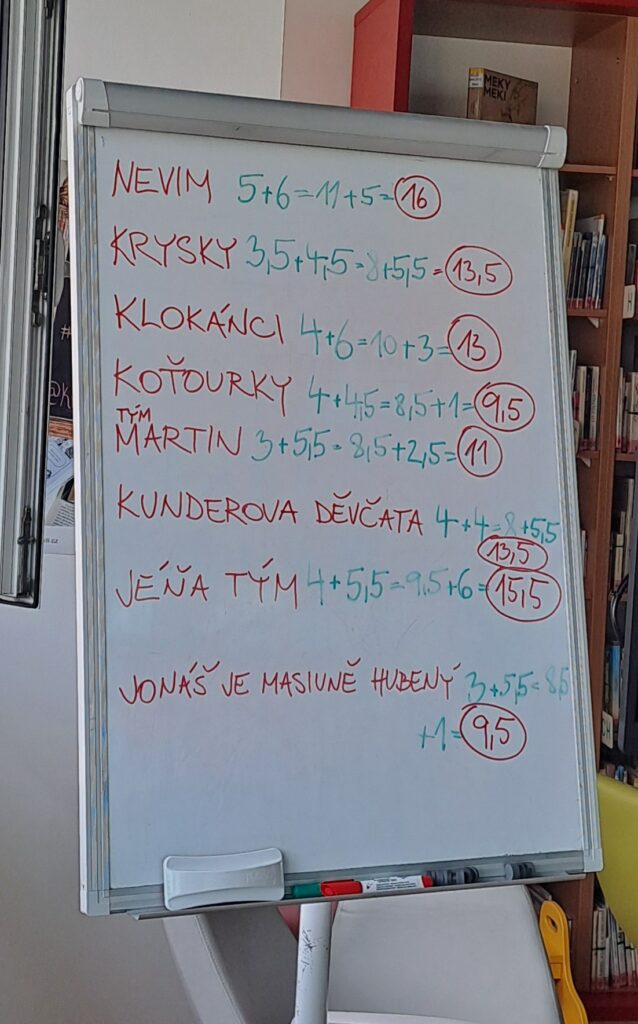 MEKY
MEKI
NEVIM 5+6=11+5=16
KRYSKY 3,5+4,5=8+5,5=13,5
KLOKÁNCI 4+6=10+3=13
KOŤOURKY 4+4,5=8,5+1=9,5
TÝM
MARTIN 3+5,5=8,5+2,5=11
KUNDEROVA DĚVČATA 4+4=8+5,5
13,5
JÉŇA TÝM 4+5,5=9,5+6=15,5
JONÁŠ JE MASIVNĚ HUBENÝ 3+5,5=8,5
+1=9,5